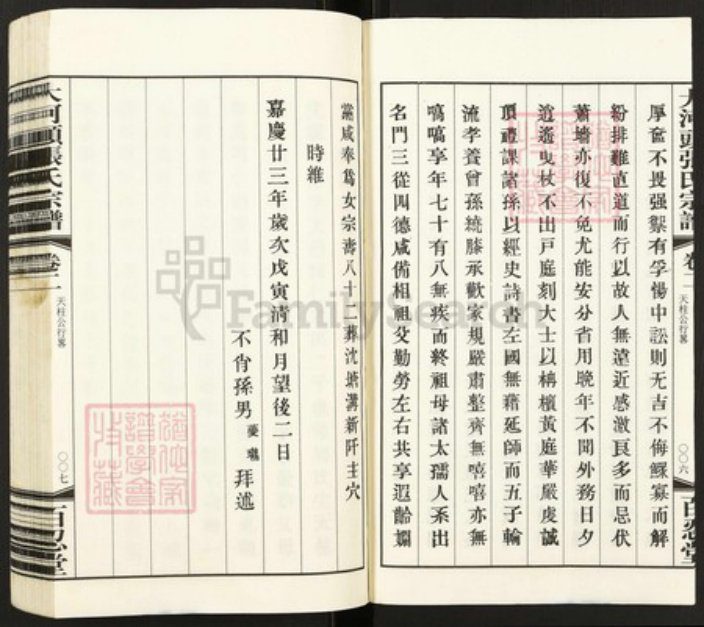 厚奩不畏强禦有孚惕中訟則无吉不侮鰥寡而解
紛排難直道而行以故人無遠近感激良多而忌伏
蕭墻亦復不免尤能安分省用晚年不聞外務日夕
逍遙曳杖不出戶庭刻大士以栴檀黃庭華嚴虔誠
頂禮課諸孫以經史詩書左國無藉延師而五子輪
流孝養曾孫繞膝承歡家規嚴肅整齊無嘻嘻亦無
嗃嗃享年七十有八無疾而終祖母諸太孺人系出
名門三從四德咸備相祖父勤勞左右共享遐齡嫻
大河頭張氏宗譜
卷二
天柱公行畧
〇〇六
百忍堂
黨咸奉為女宗壽八十二葬沈塘溝新阡主穴
時維
嘉慶廿三年歲次戊寅清和月望後二日
不肖孫男
拜述
大河頭張氏宗譜
卷二
天柱公行畧
〇〇七
百忍堂
FamilySearch